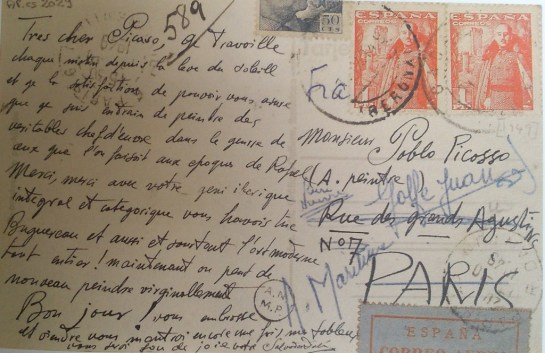 589
Tres cher Picaso, Ge travaille
chaque matin depuis la leve du soleil
et ge la satisfation de pouvoir vous asure
que ge suis entrain de peindre des
veritables chefdeuvre dans le genre de
aux que l'on faisait aux epoques de Rafael
Merci, merci avec votre geni iberique
integral et categorique vous havois tue
Buguereau et aussi et surtout l'art moderne
tout entier! maintenant on peut de
nouveau peindre virginellement
Bon jour, vous embrasse
et viendre vous
ESPAÑA
CORREOS
ESPAÑA
50
CTS
GERONA
Via
Monsieur Pablo Picasso
(A. peintre)
Golfe Juan
Rue des grands Agustins
No 7
A. Maritimes
PARIS
A. N.
M. P.
ESPAÑA
CORREO